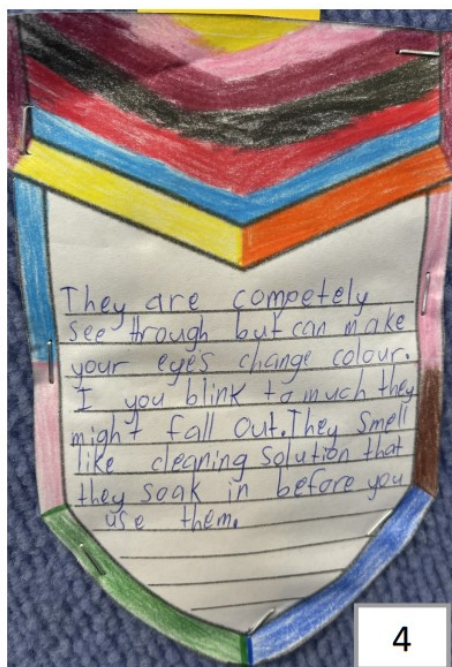 They are competely
see through but can make
your eye's change colour.
I you blink to much they
might fall out. They smell
like cleaning solution that
they soak in before you
use them.
4